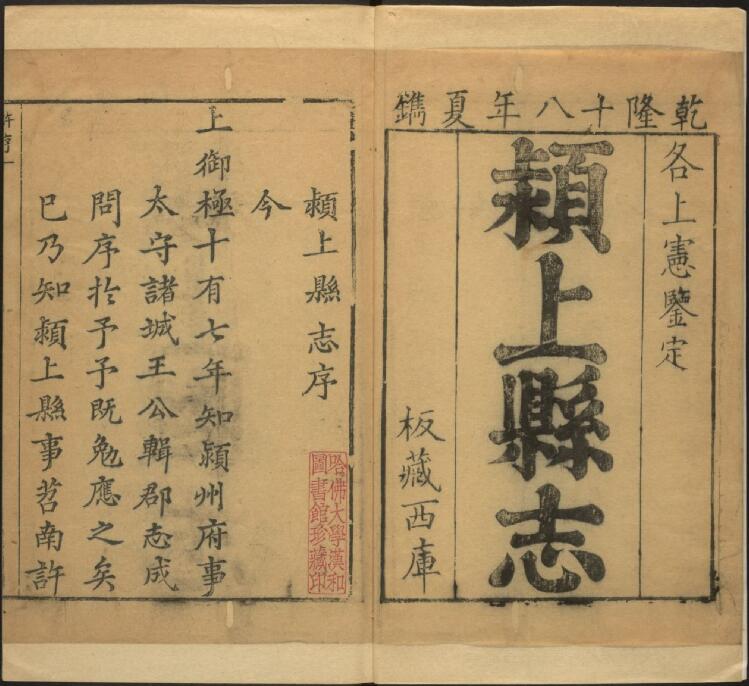 乾隆十八年夏鐫
各上憲鑒定
潁上縣志
板藏西庫
潁上縣志序
今
上御極十有七年知潁州府事
太守諸城王公輯郡志成
問序於予予既勉應之矣
巳乃知潁上縣事苕南許
哈佛大學漢和
圖書館珍藏印
許序一